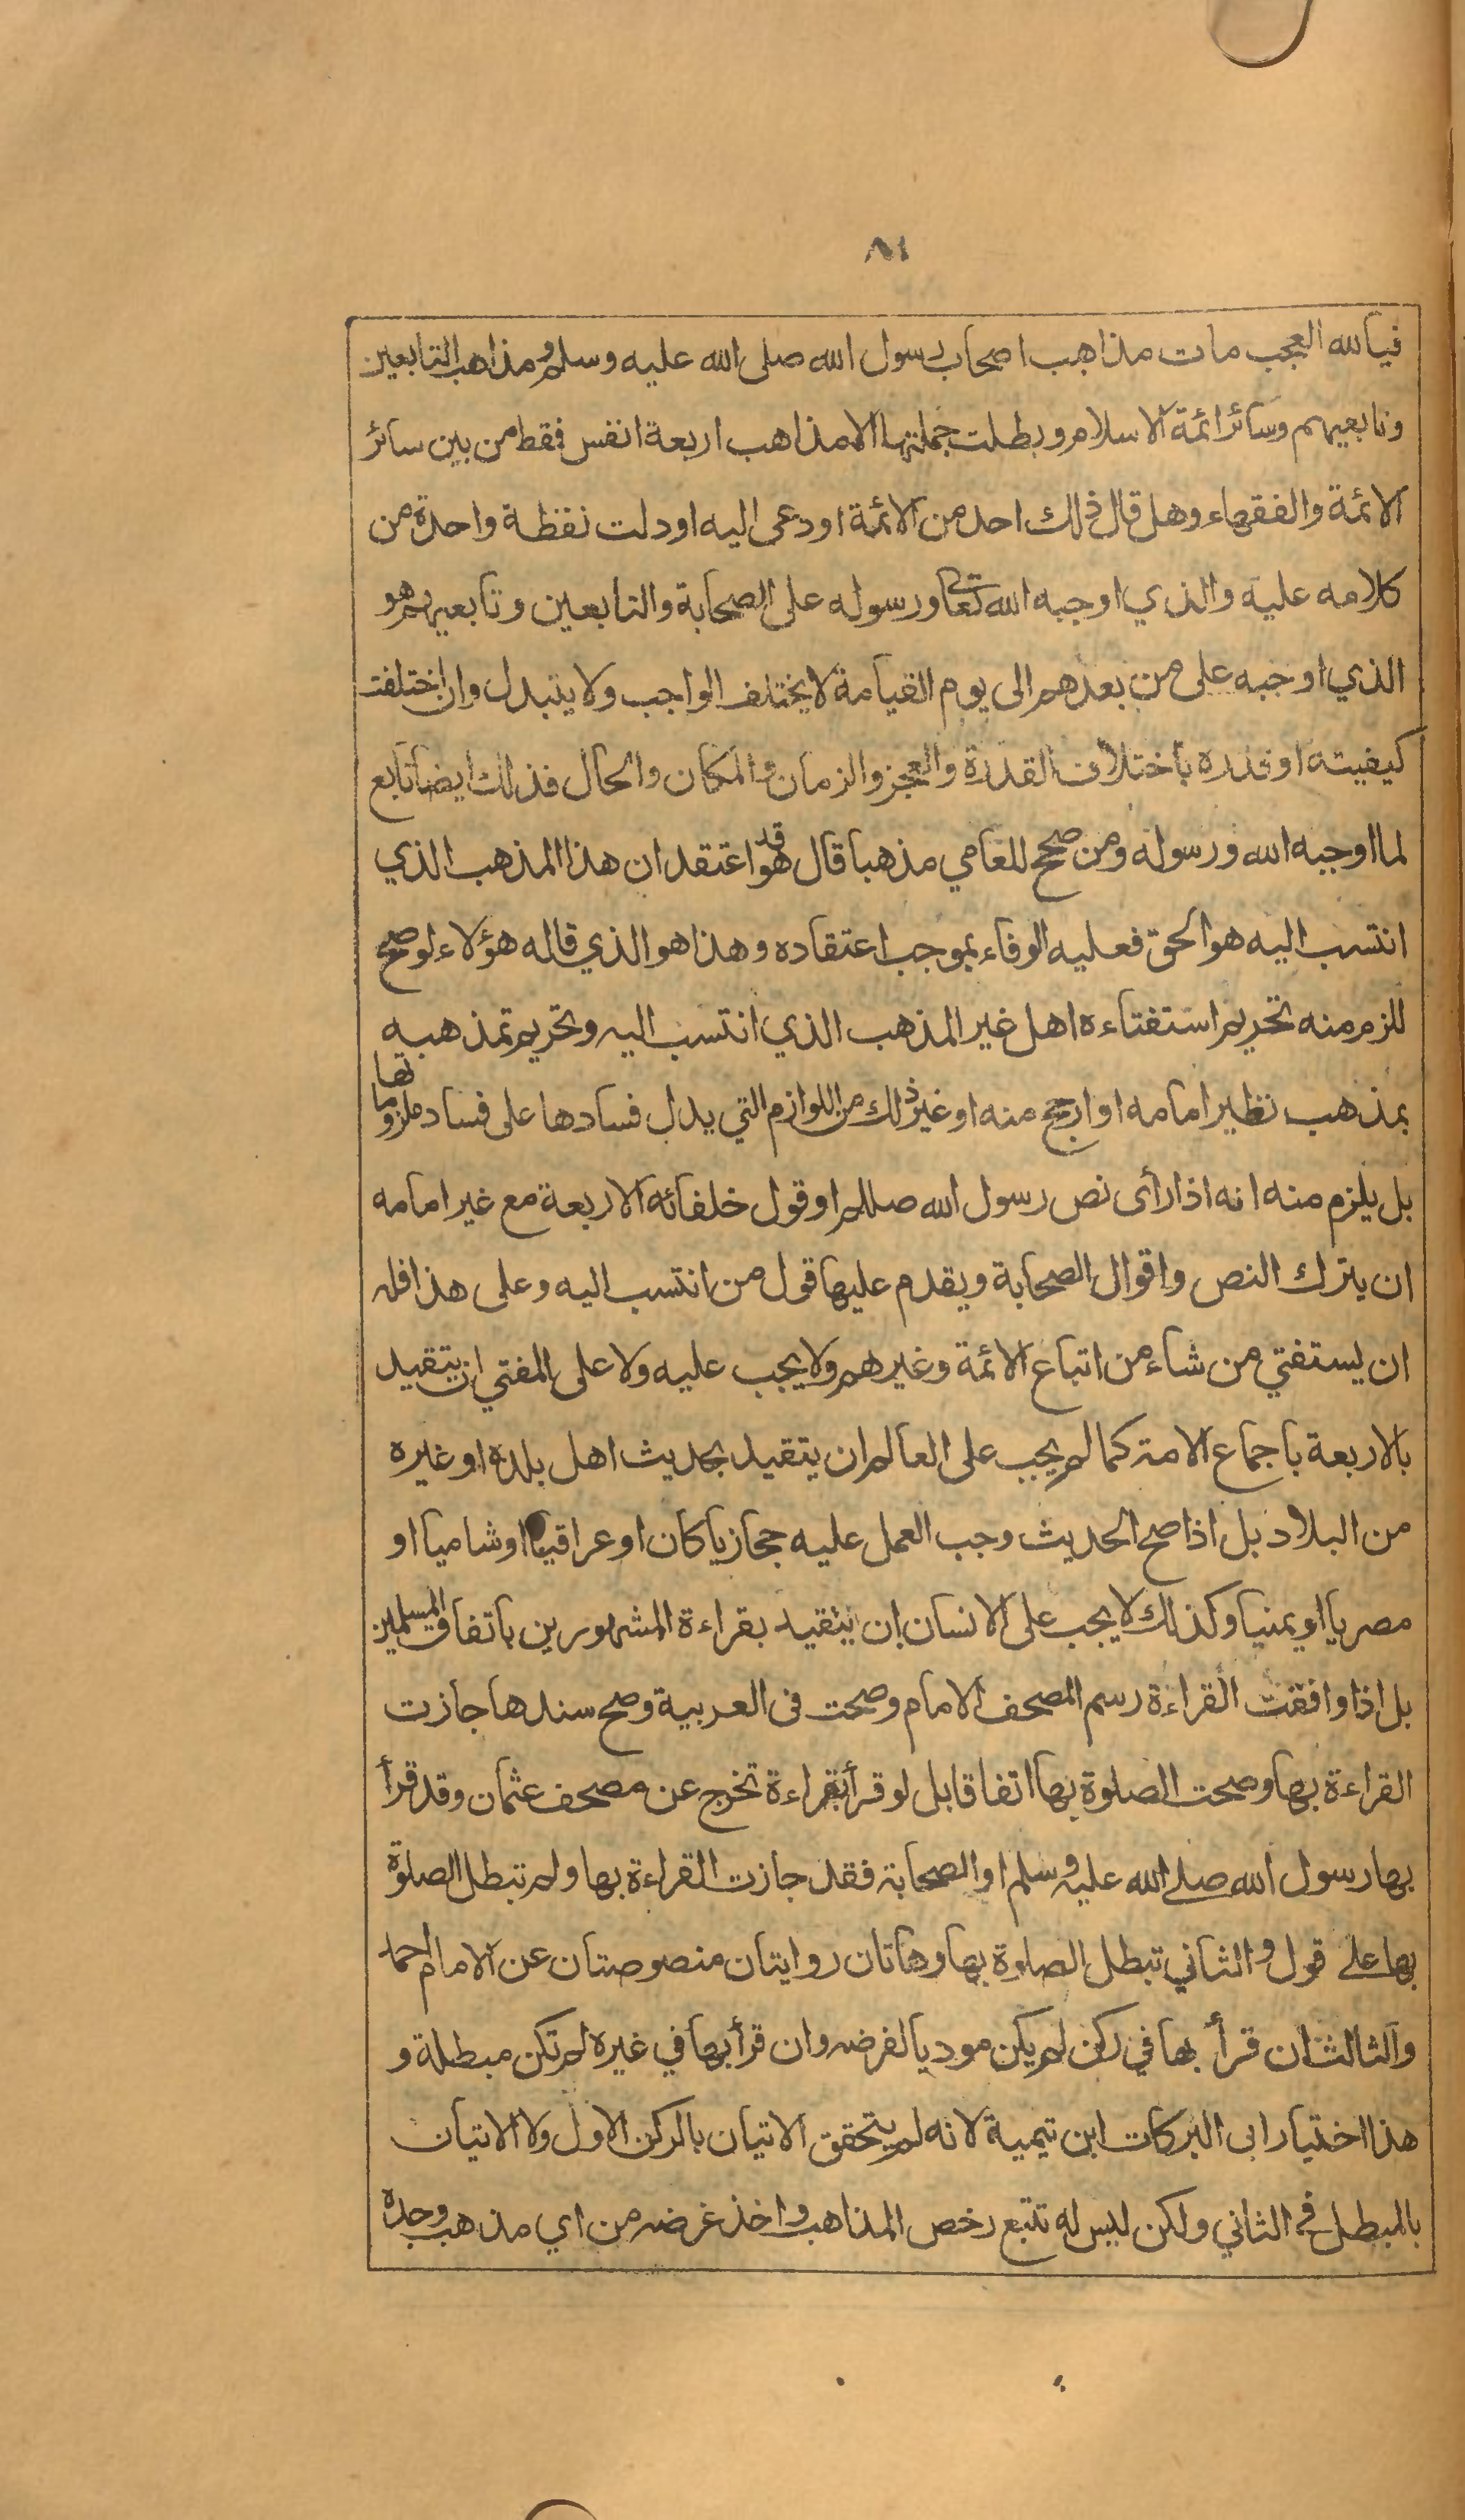 ٨١
فيالله العجب مات مذاهب اصحاب رسول الله صلى الله عليه وسلم ومذاهب التابعين
وتابعيهم وسائر ائمة الاسلام وبطلت جملتها الا مذاهب اربعة انفس فقط من بين سائر
الائمة والفقهاء وهل قال ذلك احد من الائمة او دعى اليه او دلت نقطة واحدة من
كلامه عليه والذي اوجبه الله تعالى ورسوله على الصحابة والتابعين وتابعيهم هو
الذي اوجبه على من بعدهم الى يوم القيامة لا يختلف الواجب ولا يتبدل وان اختلفت
كيفيته او قدره باختلاف القدرة والعجز والزمان والمكان والحال فذلك ايضا تابع
لما اوجبه الله ورسوله ومن صحح للعامي مذهبا قال هو قد اعتقد ان هذا المذهب الذي
انتسب اليه هو الحق فعليه الوفاء بموجب اعتقاده وهذا هو الذي قاله هؤلاء لو صح
للزم منه تحريم استفتاءه اهل غير المذهب الذي انتسب اليه وتحريم تمذهبه
بمذهب نظير امامه او ارجح منه او غير ذلك من اللوازم التي يدل فسادها على فساد ملزوماتها
بل يلزم منه انه اذا رأى نص رسول الله صللم او قول خلفائه الاربعة مع غير امامه
ان يترك النص واقوال الصحابة ويقدم عليها قول من انتسب اليه وعلى هذا فله
ان يستفتي من شاء من اتباع الائمة وغيرهم ولا يجب عليه ولا على المفتي ان يتقيد
بالاربعة باجماع الامة كما لم يجب على العالم ان يتقيد بحديث اهل بلده او غيره
من البلاد بل اذا صح الحديث وجب العمل عليه حجازيا كان او عراقيا او شاميا او
مصريا او يمنيا وكذلك لا يجب على الانسان ان يتقيد بقراءة المشهورين باتفاق المسلمين
بل اذا وافقت القراءة رسم المصحف الامام وصحت فى العربية وصح سندها جازت
القراءة بها وصحت الصلوة بها اتفاقا بل لو قرأ بقراءة تخرج عن مصحف عثمان وقد قرأ
بها رسول الله صلے الله عليه وسلم او الصحابة فقد جازت القراءة بها ولم تبطل الصلوة
بها علے قول والثاني تبطل الصلوة بها وهاتان روايتان منصوصتان عن الامام احمد
والثالث ان قرأ بها في ركن لم يكن موديا لفرضه وان قرأ بها في غيره لم تكن مبطلة و
هذا اختيار ابى البركات ابن تيمية لانه لم يتحقق الاتيان بالركن الاول ولا الاتيان
بالمبطل فى الثاني ولكن ليس له تتبع رخص المذاهب واخذ غرضه من اي مذهب وجده